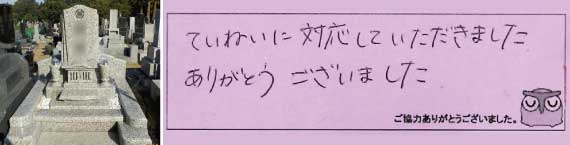 ていねいに対応していただきました
ありがとうございました
ご協力ありがとうございました。